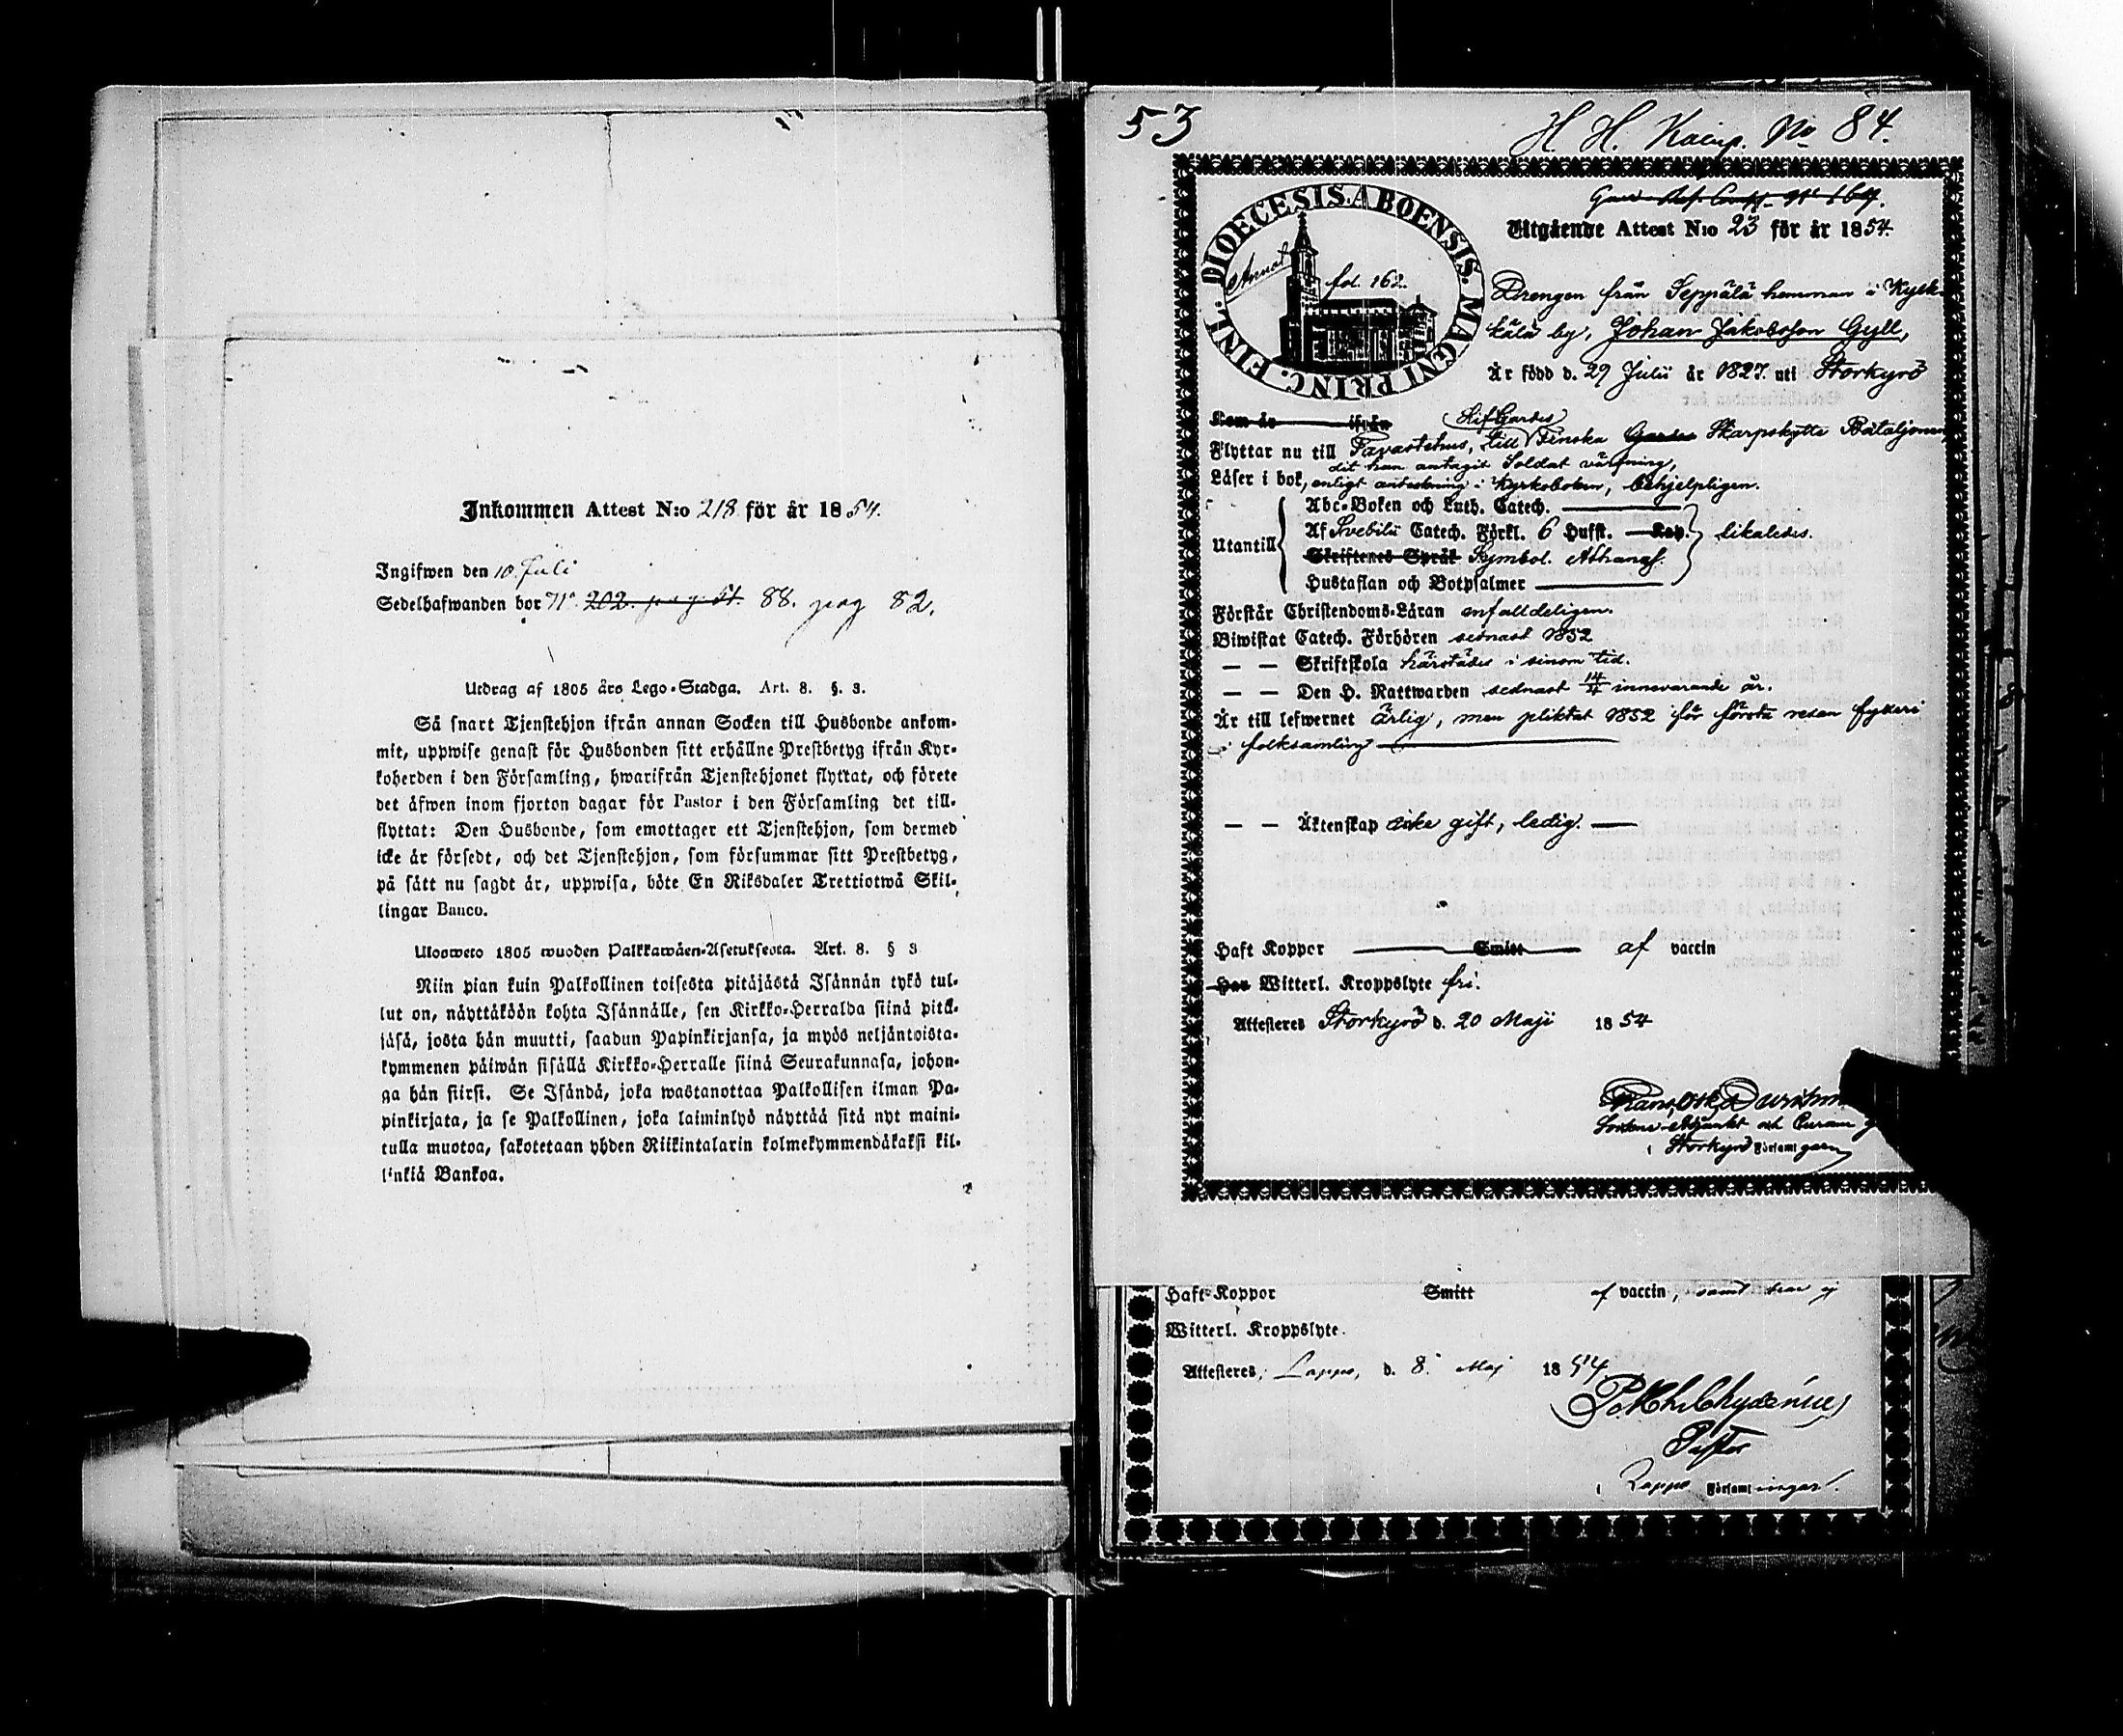 Inkommen Attest N:o 218 för år 1854.
Ingifwen den 10. Juli
Sedelhafwanden bor 71° 202. pag 51. 88. pag 82.
Utdrag af 1805 års Lego-Stadga. Art. 8. §. 3.
Så snart Tjenstehjon ifrån annan Socken till Husbonde ankom-
mit, uppwise genast för Husbonden sitt erhållne Prestbetyg ifrån Kyr-
koherden i den Församling, hwarifrån Tjenstehjonet flyttat, och förete
det äfwen inom fjorton dagar för Pastor i den Församling det till-
flyttat: Den Husbonde, som emottager ett Tjenstehjon, som dermed
icke är försedt, och det Tjenstehjon, som försummar sitt Prestbetyg,
på sätt nu sagdt är, uppwisa, böte En Riksdaler Trettiotwå Skil-
lingar Banco.
Ulosweto 1805 wuoden Palkkawäen-Asetuksesta. Art. 8. § 3
Niin pian kuin Palkollinen toisesta pitäjästä Isännän tykö tul-
lut on, näyttäköön kohta Isännälle, sen Kirkko-Herralda siinä pitä-
jäsä, josta hän muutti, saadun Papinkirjansa, ja myös neljäntoista-
kymmenen päiwän sisällä Kirkko-Herralle siinä Seurakunnasa, johon-
ga hän siirsi. Se Isändä, joka wastanottaa Palkollisen ilman Pa-
pinkirjata, ja se Palkollinen, joka laiminlyö näyttää sitä nyt maini-
tulla muotoa, sakotetaan yhden Riikintalarin kolmekymmendäkaksi kil-
linkiä Bankoa.
53
H. H. Kaup. No 84.
Utgående Attest N:o 23 för år 1854.
DIOECESIS ABOENSIS. MAGNI PRINC. FINL.
Annot fol. 162.
Drengen från Seppälä hemman i Kyrk-
kälä by, Johan Jakobsson Gyll,
Är född d. 29 Julii år 1827. uti Storkyrö
Kom år ifrån
LifGardes
Flyttar nu till Tavastehus, till Finska Gardes Skarpskytte Bataljonen
dit han antagit Soldat värfning,
Läser i bok, enligt anteckning i Kyrkoboken, behjelpligen.
Utantill
Abc-Boken och Luth. Catech.
Af Svebilii Catech. Förkl. 6 Hufst. Kap. likaledes.
Skriftenes Språk Symbol. Athanas.
Hustaflan och Botpsalmer
Förstår Christendoms-Läran enfalldeligen.
Biwistat Catech. Förhören sednast 1852
— — Skriftskola härstädes i sinom tid.
— — Den H. Nattwarden sednast 14/4 innevarande år.
Är till lefwernet ärlig, men pliktat 1852 för första resan fylleri
i folksamling
— — Äktenskap icke gift, ledig.
Haft Koppor Smitt af vaccin
Har Witterl. Kroppslyte fri.
Attesteres Storkyrö d. 20 Maji 1854
Sockne-Adjunkt och Curam
i Storkyrö Församl
Haft Koppor Smitt af vaccin, samt har ej
Witterl. Kroppslyte.
Attesteres, Lappo, d. 8. Maj 1854
Chydenius
Pastor
i Lappo Församlingar.